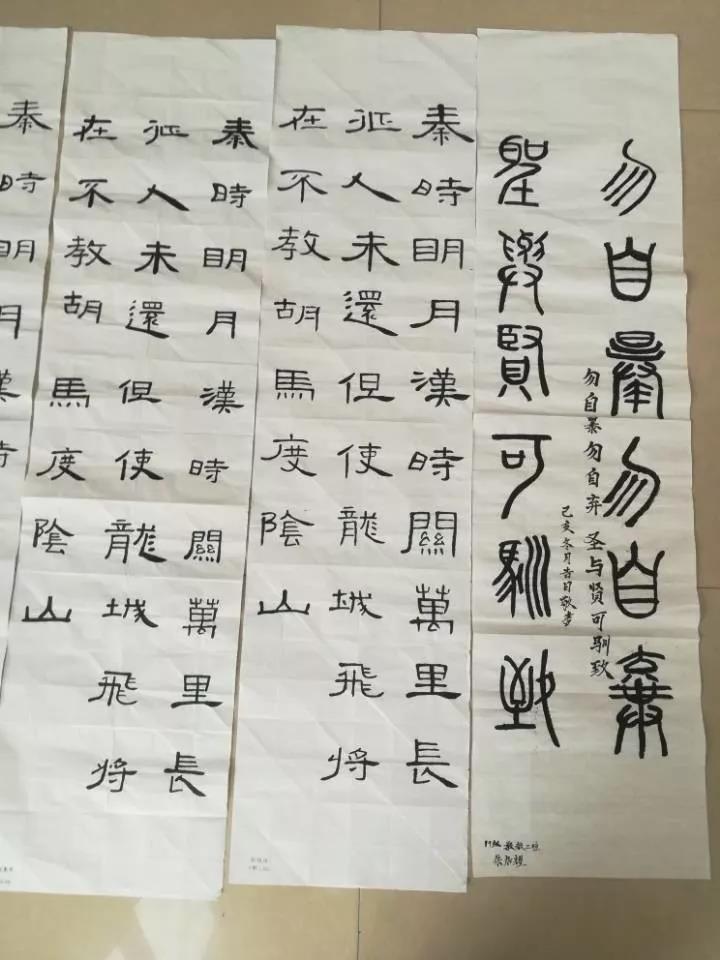 勿自暴勿自棄
勿自暴勿自弃 圣与贤可驯致
己亥冬月吉日敬书
聖與賢可馴致
秦時明月漢時關萬里長
征人未還但使龍城飛將
在不教胡馬度陰山
秦時明月漢時關萬里長
征人未還但使龍城飛將
在不教胡馬度陰山
秦時明月漢時